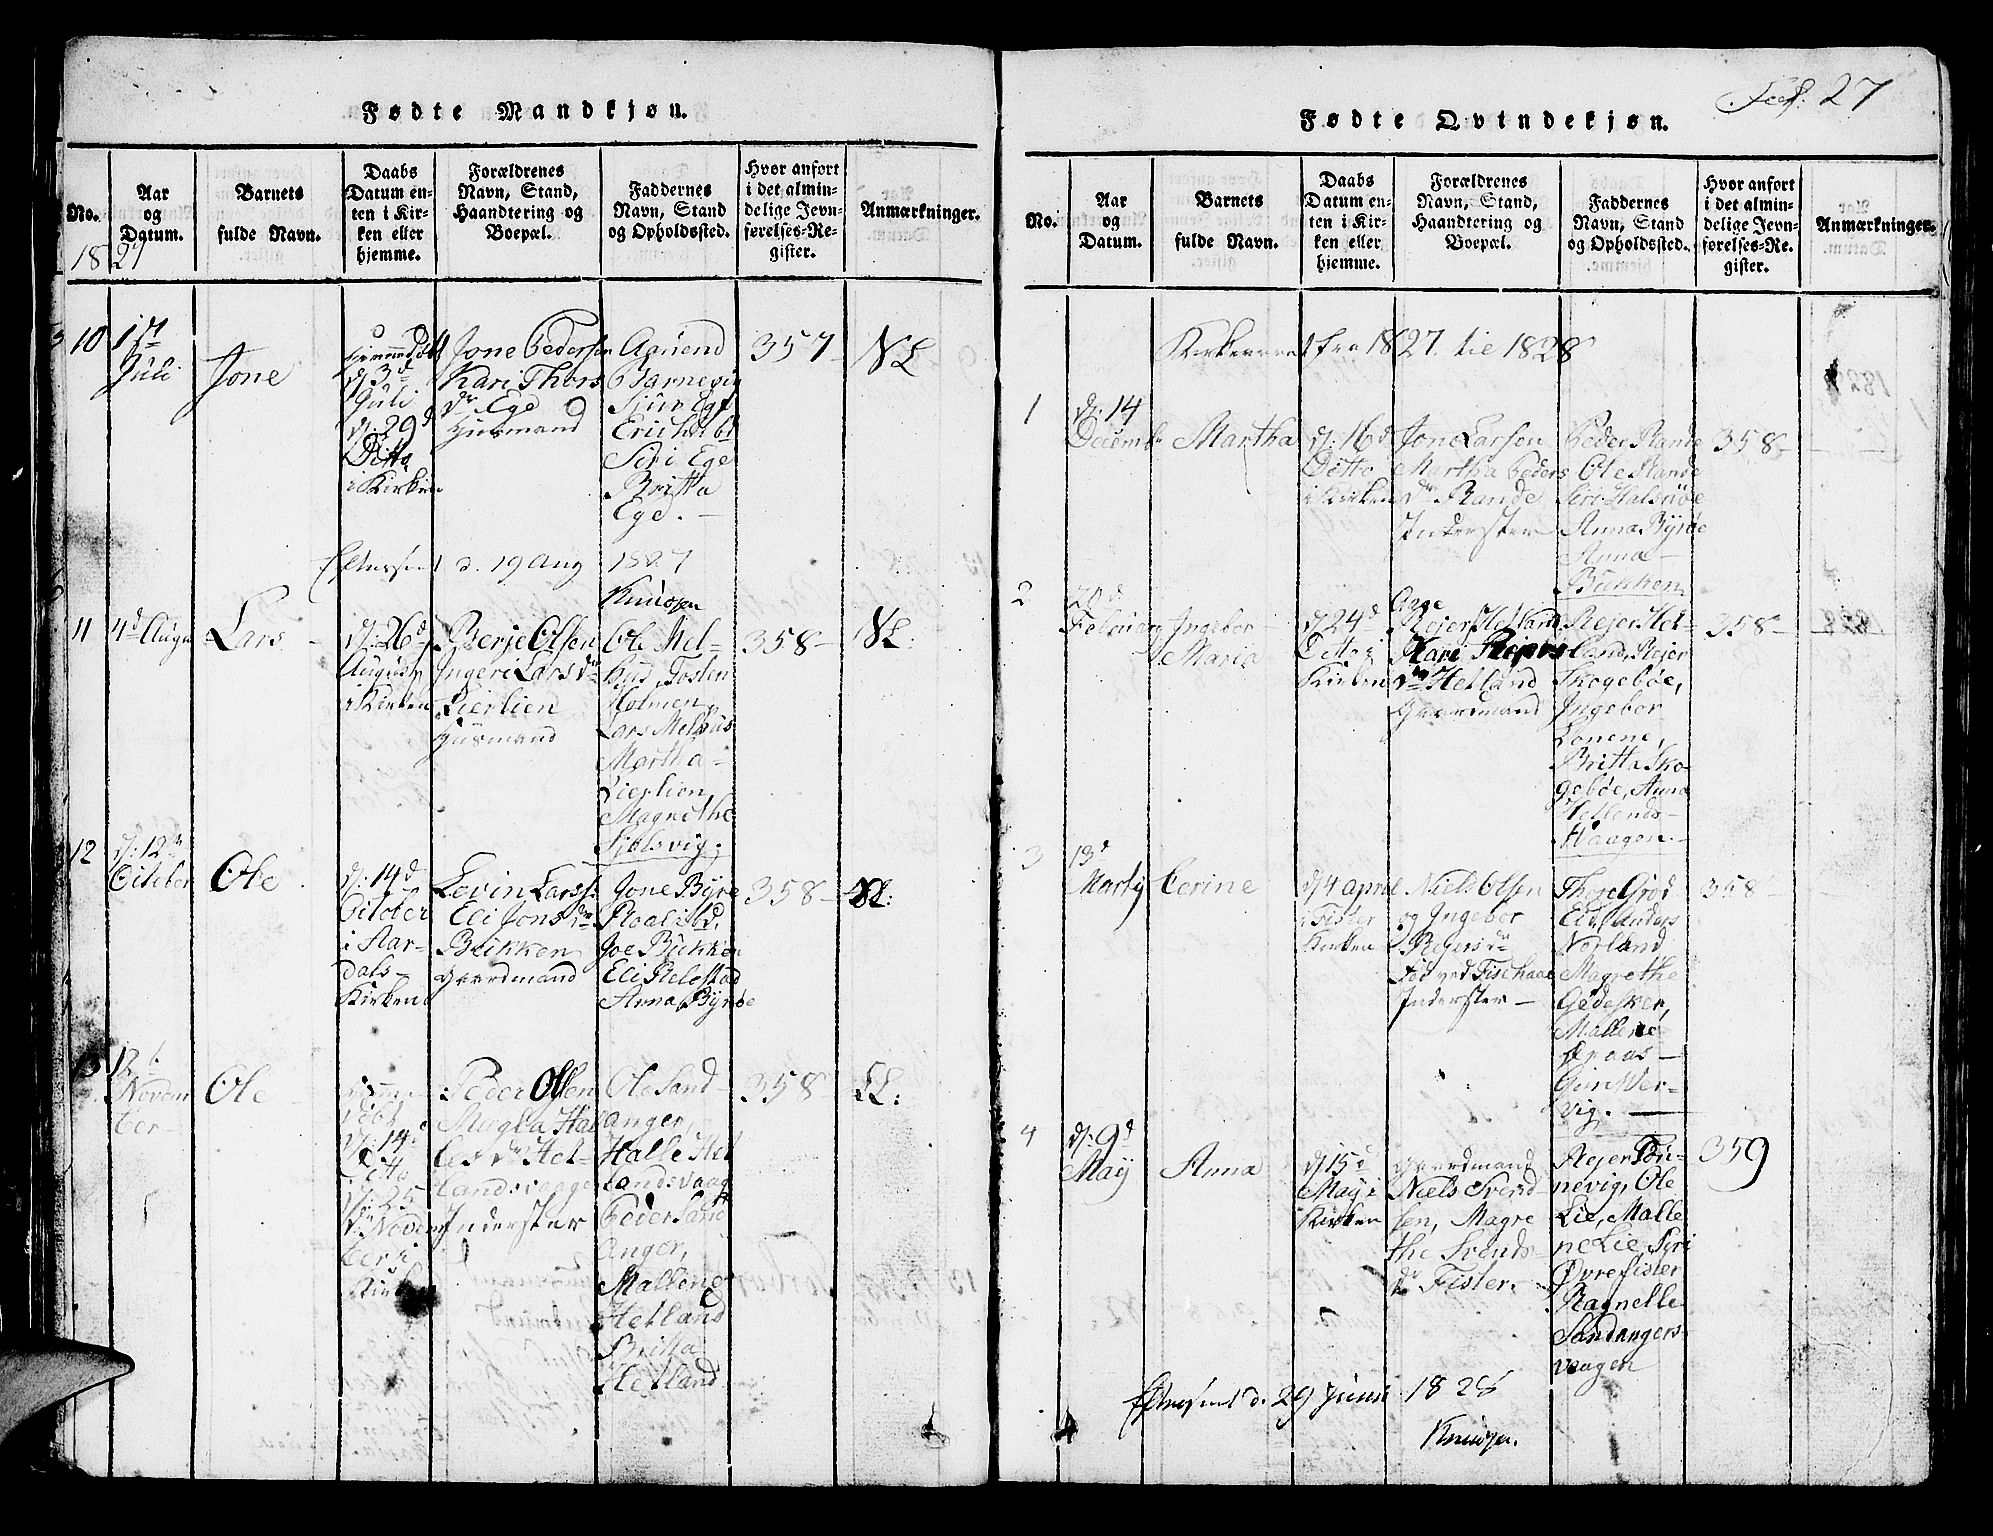 Fødte Mandkjøn.
No.
Aar
og
Datum.
Barnets
fulde Navn.
Daabs
Datum en-
ten i Kir-
ken eller
hjemme.
Forældrenes
Navn, Stand,
Haandtering og
Boepæl.
Faddernes
Navn, Stand
og Opholdssted.
Hvor anført
i det almin-
delige Jevn-
førelses-Re-
gister.
Anmærkninger.
1827
10
1st
Juli
Jone
d: 3d
Juli
d: 29d
Ditto
i Kirken
Jone Peders
Kari Thors
dr Ege
Huusmand
Amund
Barnevig
Sjur Ege
Siri Ege
Britta
Ege.
357
NL
Efterseet d. 19 Aug 1827
Knudsen
11
4d Augu
Lars
d: 26d
August
i Kirken
Berje Olsen
Ingeri Lars dr
Lierlien
Huusmand
Ole Mel=
huus, Tosten
Holmen,
Lars Melhuus
Martha
Lierlien
Magrethe
Sjølsvig.
358
NL
12
d: 12te
October
Ole
d: 14d
October
i Aar-
dals
Kirken
Levin Larss:
Eli Jons dr
Bukken
Gaardmand
Jone Byrøe
Joe Bukken
Eli Relestad
Anna Byrøe
358
NL:
13
12t
Novem
ber
Ole
døbt
d: 14d
Ditto
d: 25
Novem
ber i
Kirken
Peder Olsen
Magla Hal
les dr Het-
landsvaagen
Inderster
Ole Sand
anger,
Halle Het
landsvaag
Peder Sand
anger,
Mallene
Hetland
Britta
Hetland
358
LL:
Fol: 27
Fødte Qvindekjøn.
No.
Aar
og
Datum.
Barnets
fulde Navn.
Daabs
Datum en-
ten i Kir-
ken eller
hjemme.
Forældrenes
Navn, Stand,
Haandtering og
Boepæl.
Faddernes
Navn, Stand
og Opholdssted.
Hvor anført
i det almin-
delige Jevn-
førelses-Re-
gister.
Anmærkninger.
Kirkeaaret fra 1827 til 1828
1
d: 14
Decemb
Martha
d: 16d
Ditto
i Kirken
Jone Larsen
Martha Peders
dr Rande
Inderster
Peder Rande
Ole Rande
Siri Halsnøe
Anna Byrøe
Anna
Bukken
358
2
20d
Februar
Ingebor
Maria
d: 24d
Ditto i
Kirken
Aage
Rejers Hetland
Kari Rejers
dr Hetland
Gaardmand
Rejer Het=
land, Rejer
Skogebøe,
Ingebor
Lonene,
Britta Sko-
gebøe, Anna
Hetlands-
Haagen
358
3
13d
Martij
Cerine
d 4 april
i Fister
Kirken
Niels Olsen
og Ingebor
Rejers dr
Inderster
Anders
Norland
Magrethe
Gedesker,
Mallene
vig.
358
4
d: 9d
Maij
Anna
d 15d
Maij i
Kirken
Gaardmand
Niels Svend
sen, Magre
the Svends
dr Fister.
Rejer Tøn-
nevig, Ole
Lie, Malle
ne Lie, Siri
Øvre Fister
Ragnelle
Sandangers-
vaagen
359
Efterseet d. 29 Juni 1828
Knudsen.